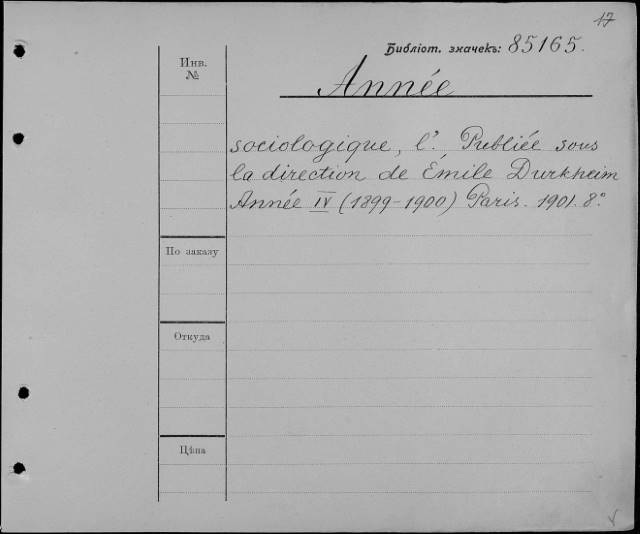 17
Библіот. значекъ: 85165.
Инв.
№
Année
sociologique, l'. Publiée sous
la direction de Émile Durkheim
Année IV (1899-1900) Paris. 1901. 8°
По заказу
Откуда
Цѣна